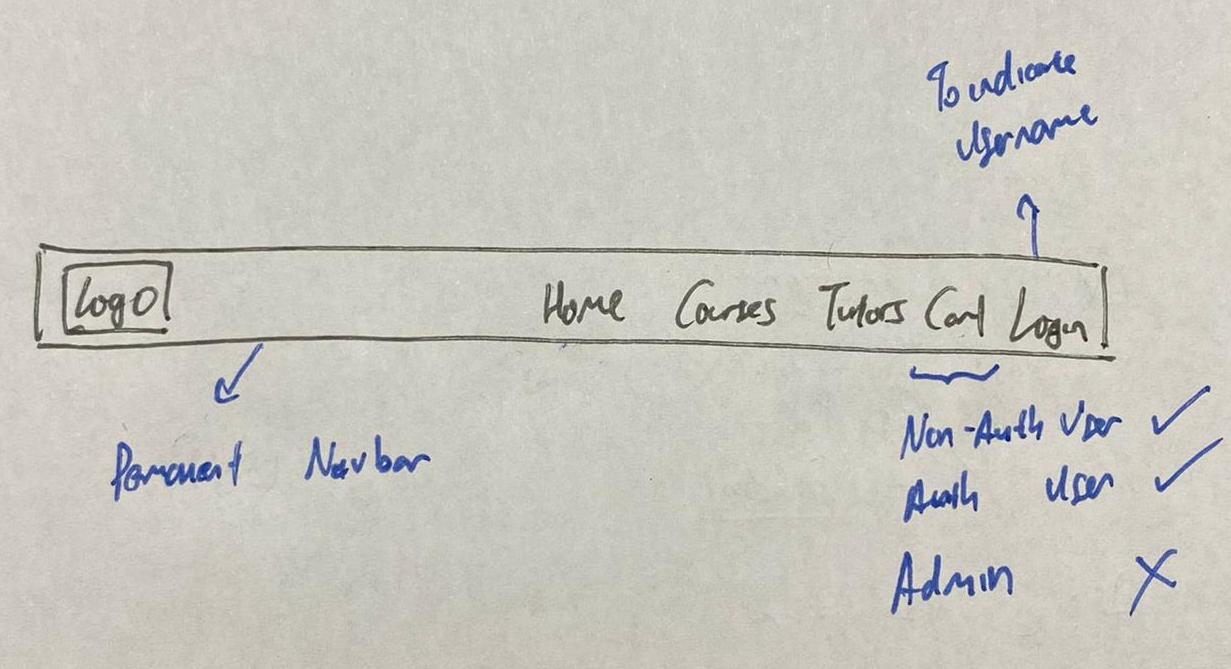 To indicate
Username
Logo Home Courses Tutors Cart Login
Permanent Navbar
Non-Auth User ✓
Auth User ✓
Admin X